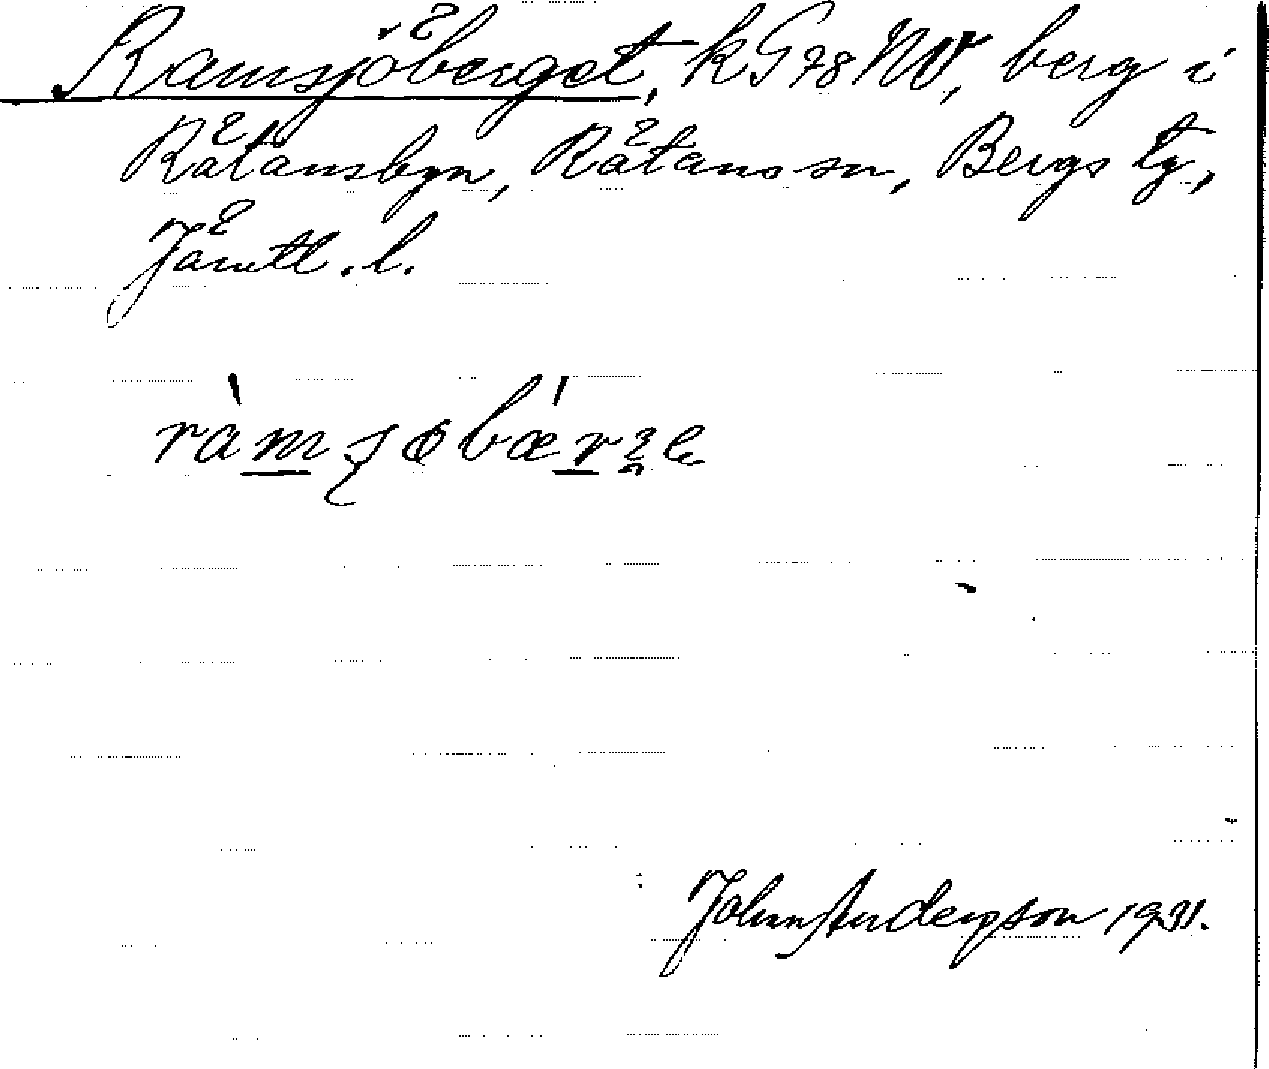 Ramsjöberget, k G 78 NV, berg i
Rätansbyn, Rätans sn, Bergs tg,
Jämtl. l.
John Anderson 1931.